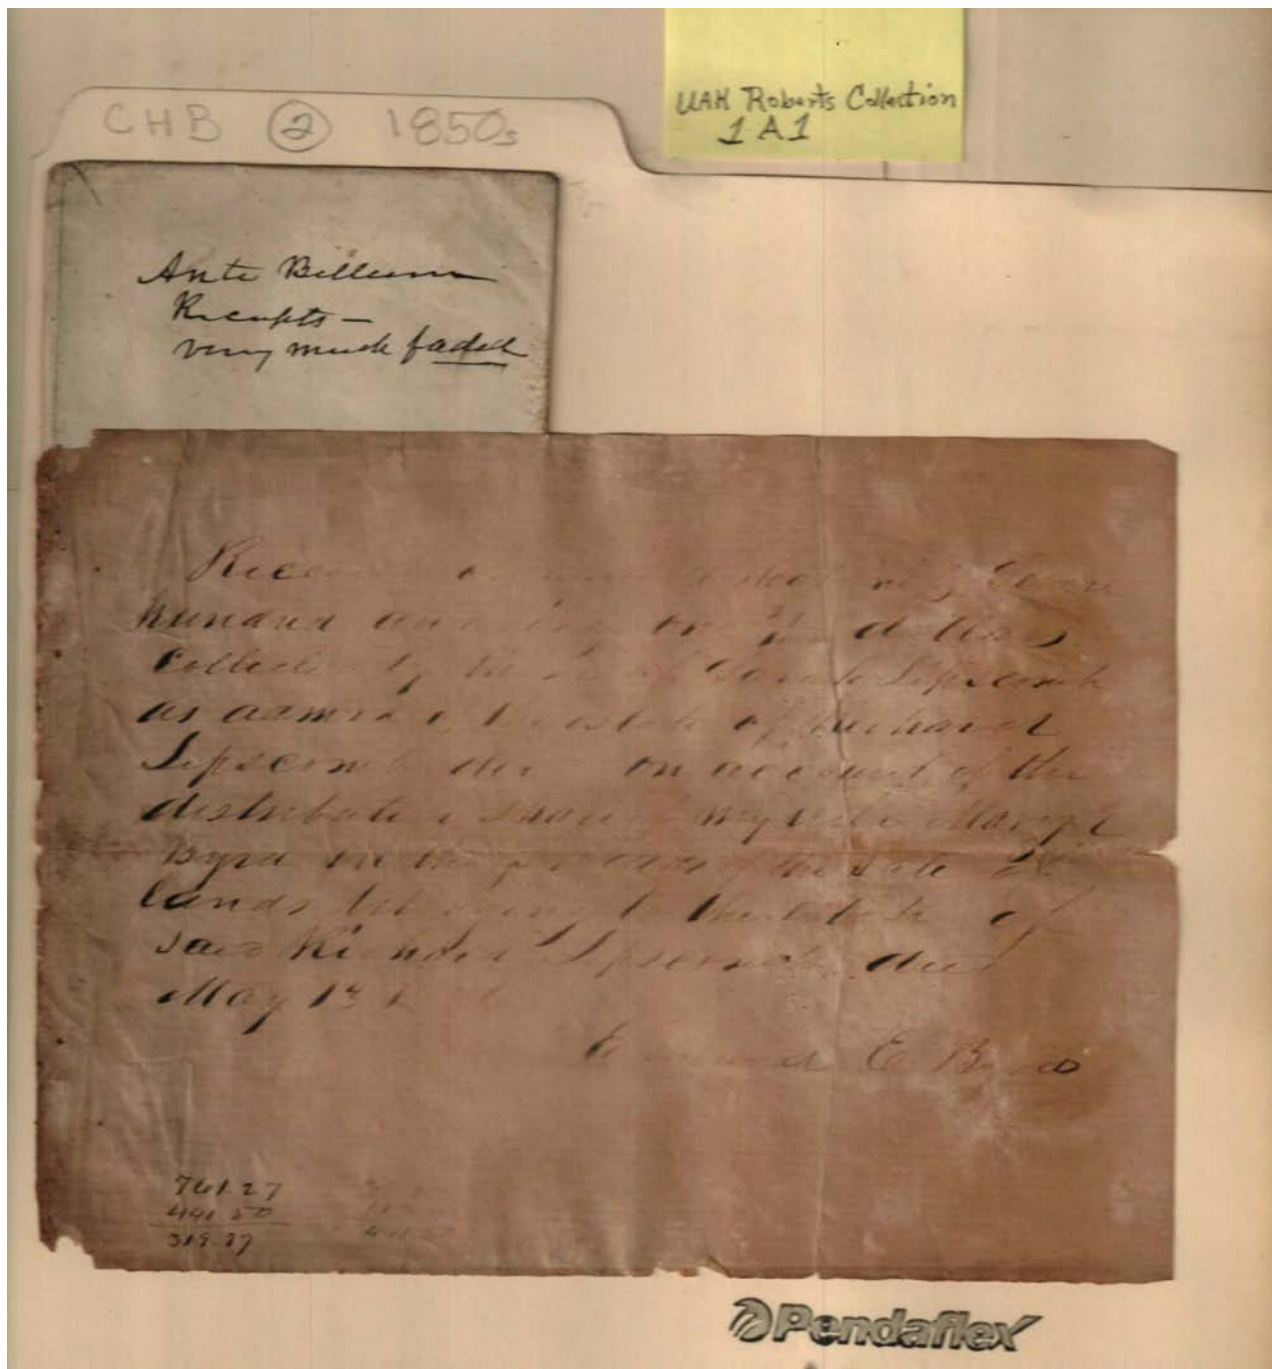 CHB ② 1850s
UAH Roberts Collection
1A1
Ante Bellum
Receipts —
very much faded
hundred and dollars
Collected by Sarah Lipscomb
as admrx of the estate of Richard
Lipscomb decd on account of the
distributive share my wife Mary E
Byrd in the proceeds of the sale
lands belonging to the estate of
said Richard Lipscomb decd
May 1st
E. Byrd
761.27
441.50
319.77
Pendaflex